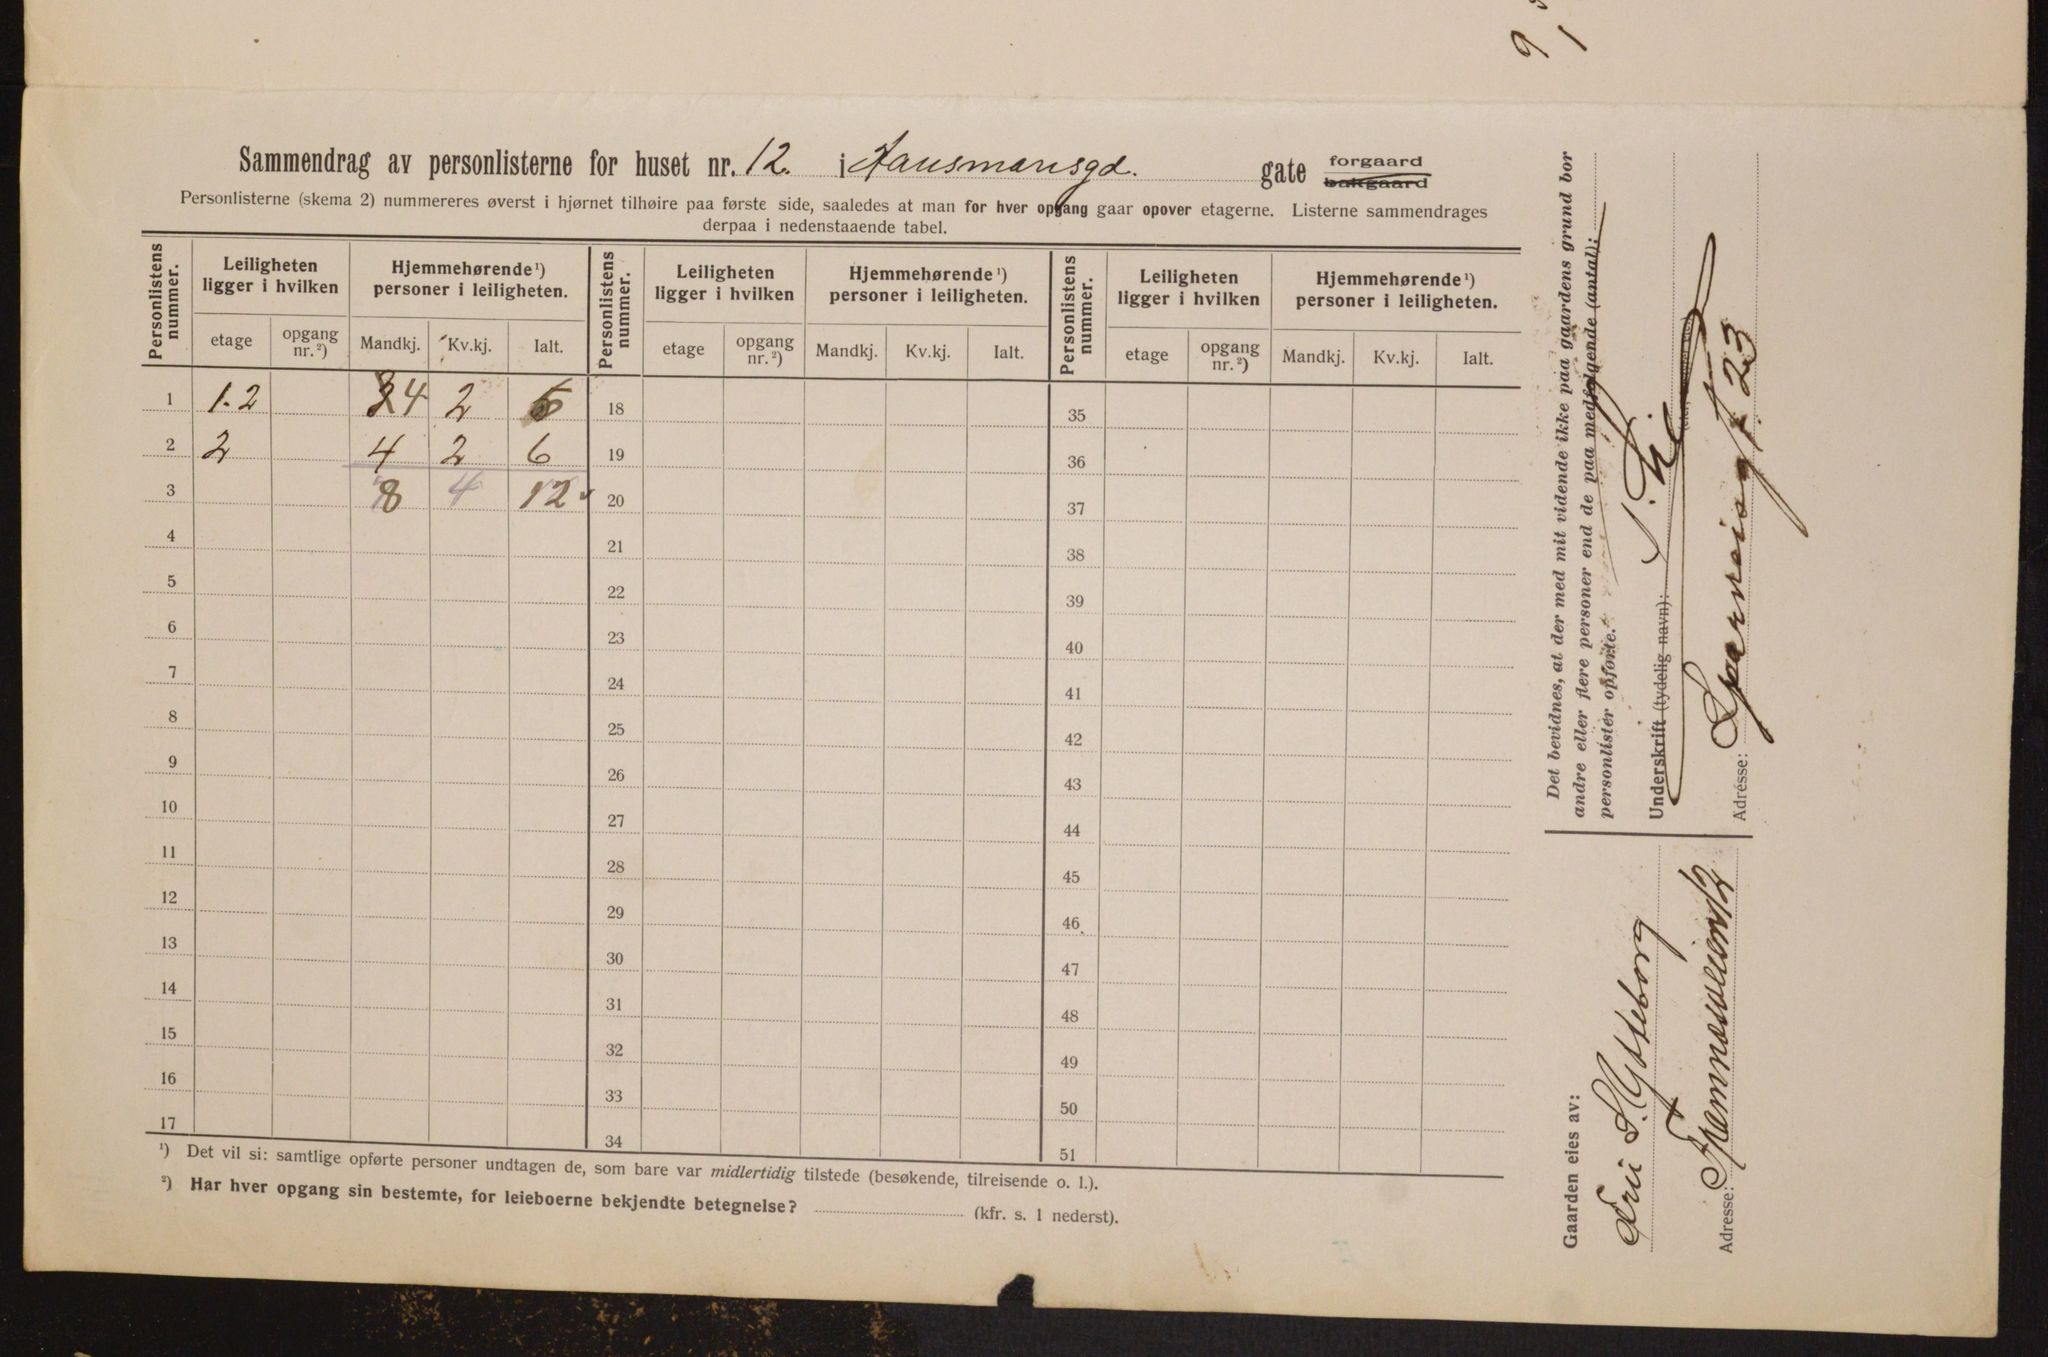 Sammendrag av personlisterne for huset nr. 12. i Hausmansgd. gate forgaard bakgaard
Personlisterne (skema 2) nummereres øverst i hjørnet tilhøire paa første side, saaledes at man for hver opgang gaar opover etagerne. Listerne sammendrages
derpaa i nedenstaaende tabel.
Personlistens nummer. Leiligheten ligger i hvilken Hjemmehørende ¹) personer i leiligheten. Personlistens nummer. Leiligheten ligger i hvilken Hjemmehørende ¹) personer i leiligheten. Personlistens nummer. Leiligheten ligger i hvilken Hjemmehørende ¹) personer i leiligheten.
etage opgang nr. ²) Mandkj. Kv.kj. Ialt. etage opgang nr. ²) Mandkj. Kv.kj. Ialt. etage opgang nr. ²) Mandkj. Kv.kj. Ialt.
1 1.2 4 2 6 18 35
2 2 4 2 6 19 36
3 8 4 12 20 37
4 21 38
5 22 39
6 23 40
7 24 41
8 25 42
9 26 43
10 27 44
11 28 45
12 29 46
13 30 47
14 31 48
15 32 49
16 33 50
17 34 51
¹) Det vil si: samtlige opførte personer undtagen de, som bare var midlertidig tilstede (besøkende, tilreisende o. l.).
²) Har hver opgang sin bestemte, for leieboerne bekjendte betegnelse? (kfr. s. 1 nederst).
Det bevidnes, at der med mit vidende ikke paa gaardens grund bor
andre eller flere personer end de paa medfølgende (antal):
personlister opførte.
Underskrift (tydelig navn):
Adresse: 23
Gaarden eies av:
S. Ytteborg
Adresse:
9
1